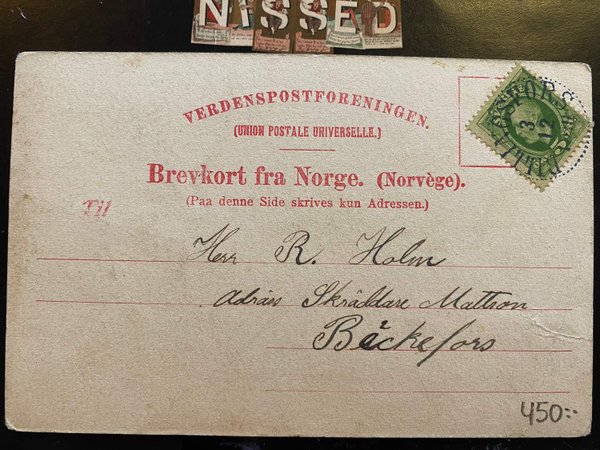 NISSED
VERDENSPOSTFORENINGEN.
(UNION POSTALE UNIVERSELLE.)
Brevkort fra Norge. (Norvège).
(Paa denne Side skrives kun Adressen.)
Til
Herr R. Holm
Adräss Skräddare Mattson
Bäckefors
3
12
450:-